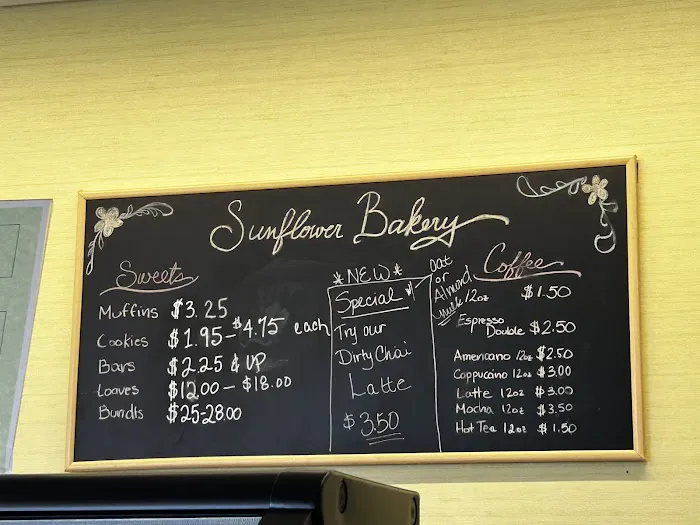 Sunflower Bakery
Sweets
Muffins $3.25
Cookies $1.95-$4.75 each
Bars $2.25 & UP
Loaves $12.00 - $18.00
Bundts $25-28.00
*NEW*
Special
Try our
Dirty Chai
Latte
$3.50
Oat
or
Almond
milk
Coffee
12oz $1.50
Espresso
Double $2.50
Americano 12oz $2.50
Cappuccino 12oz $3.00
Latte 12oz $3.00
Mocha 12oz $3.50
Hot Tea 12oz $1.50